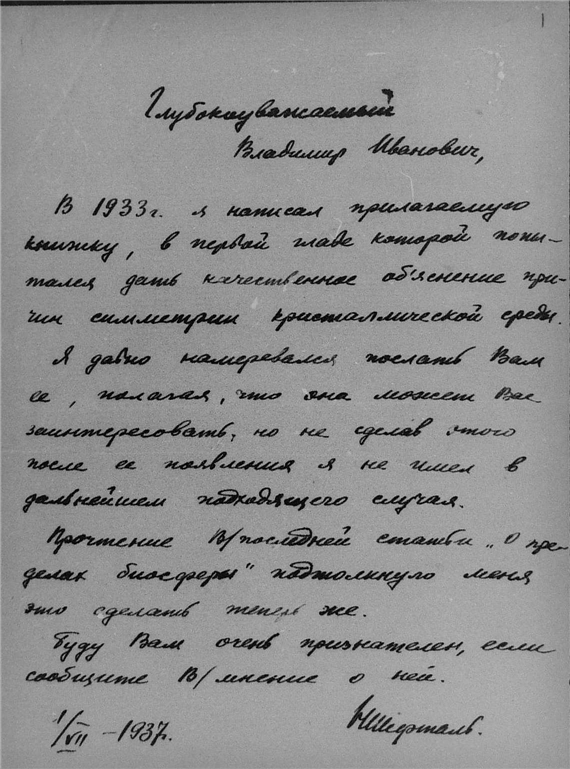 1
Глубокоуважаемый
Владимир Иванович,
В 1933г. я написал прилагаемую
книжку, в первой главе которой попы-
тался дать качественное об'яснение при-
чин симметрии кристаллической среды.
Я давно намеревался послать Вам
ее, полагая, что она может Вас
заинтересовать, но не сделав этого
после ее появления я не имел в
дальнейшем подходящего случая.
Прочтение В/последней статьи „О пре-
делах биосферы" подтолкнуло меня
это сделать теперь же.
Буду Вам очень признателен, если
сообщите В/мнение о ней.
1/VII -1937г.
Шефталь.